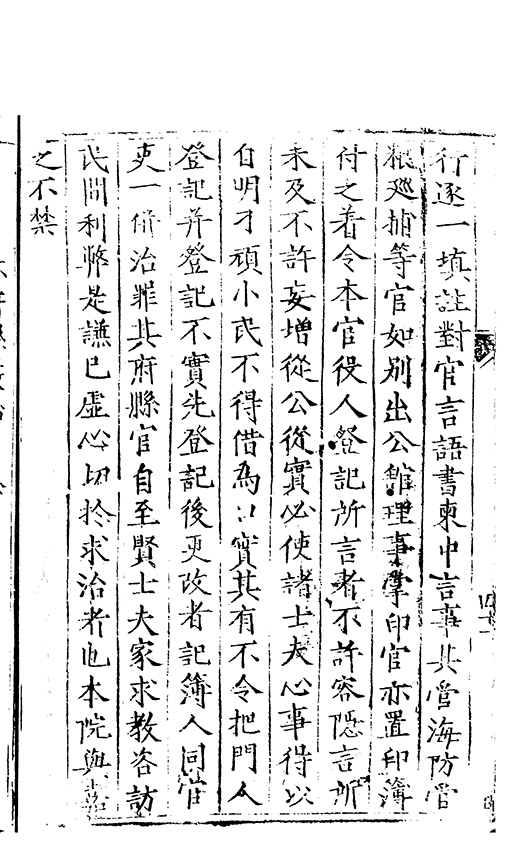 行逐一填註對官言語書柬中言事其管海防管
粮廵捕等官如别出公館理事掌印官亦置印簿
付之着令本官役人登記所言者不許容隱言所
未及不許妄增從公從實必使諸士夫心事得以
白明刁頑小民不得借為口實其有不令把門人
登記并登記不實先登記後更改者記簿人同官
吏一併治罪其府縣官自至賢士夫家求教咨訪
民間利弊是謙已虛心切扵求治者也本院與嘉
之不禁